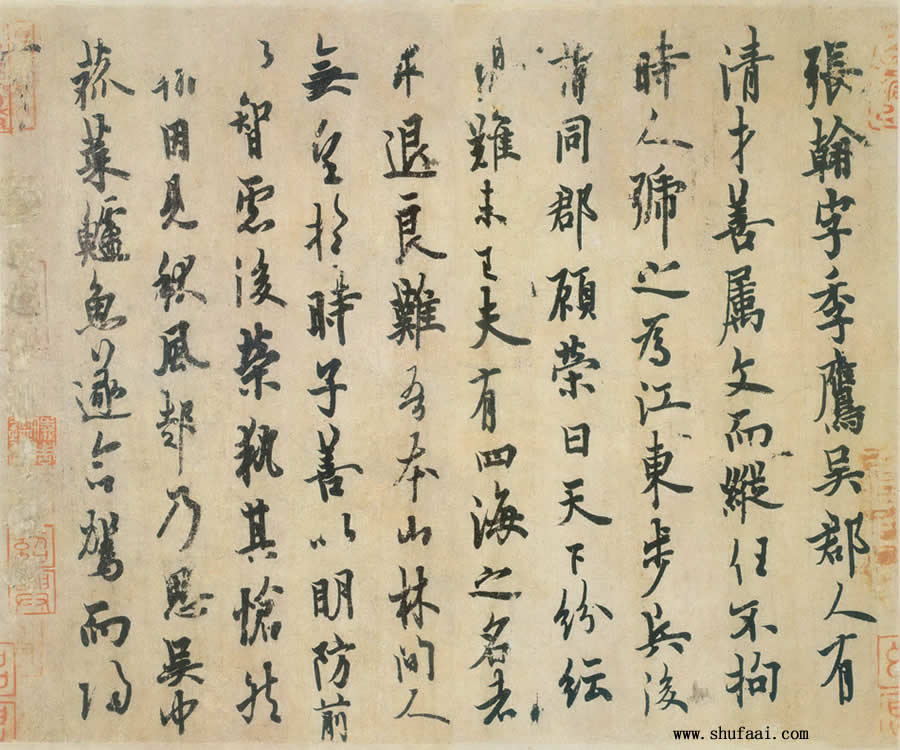 張翰字季鷹吳郡人有
清才善属文而縱任不拘
時人號之為江東步兵後
謂同郡顧榮曰天下紛紜
禍難未已夫有四海之名者
求退良難吾本山林間人
無望於時子善以明防前
以智慮後榮執其愴然
翰因見秋風起乃思吳中
菰菜鱸魚遂命駕而歸
www.shufaai.com